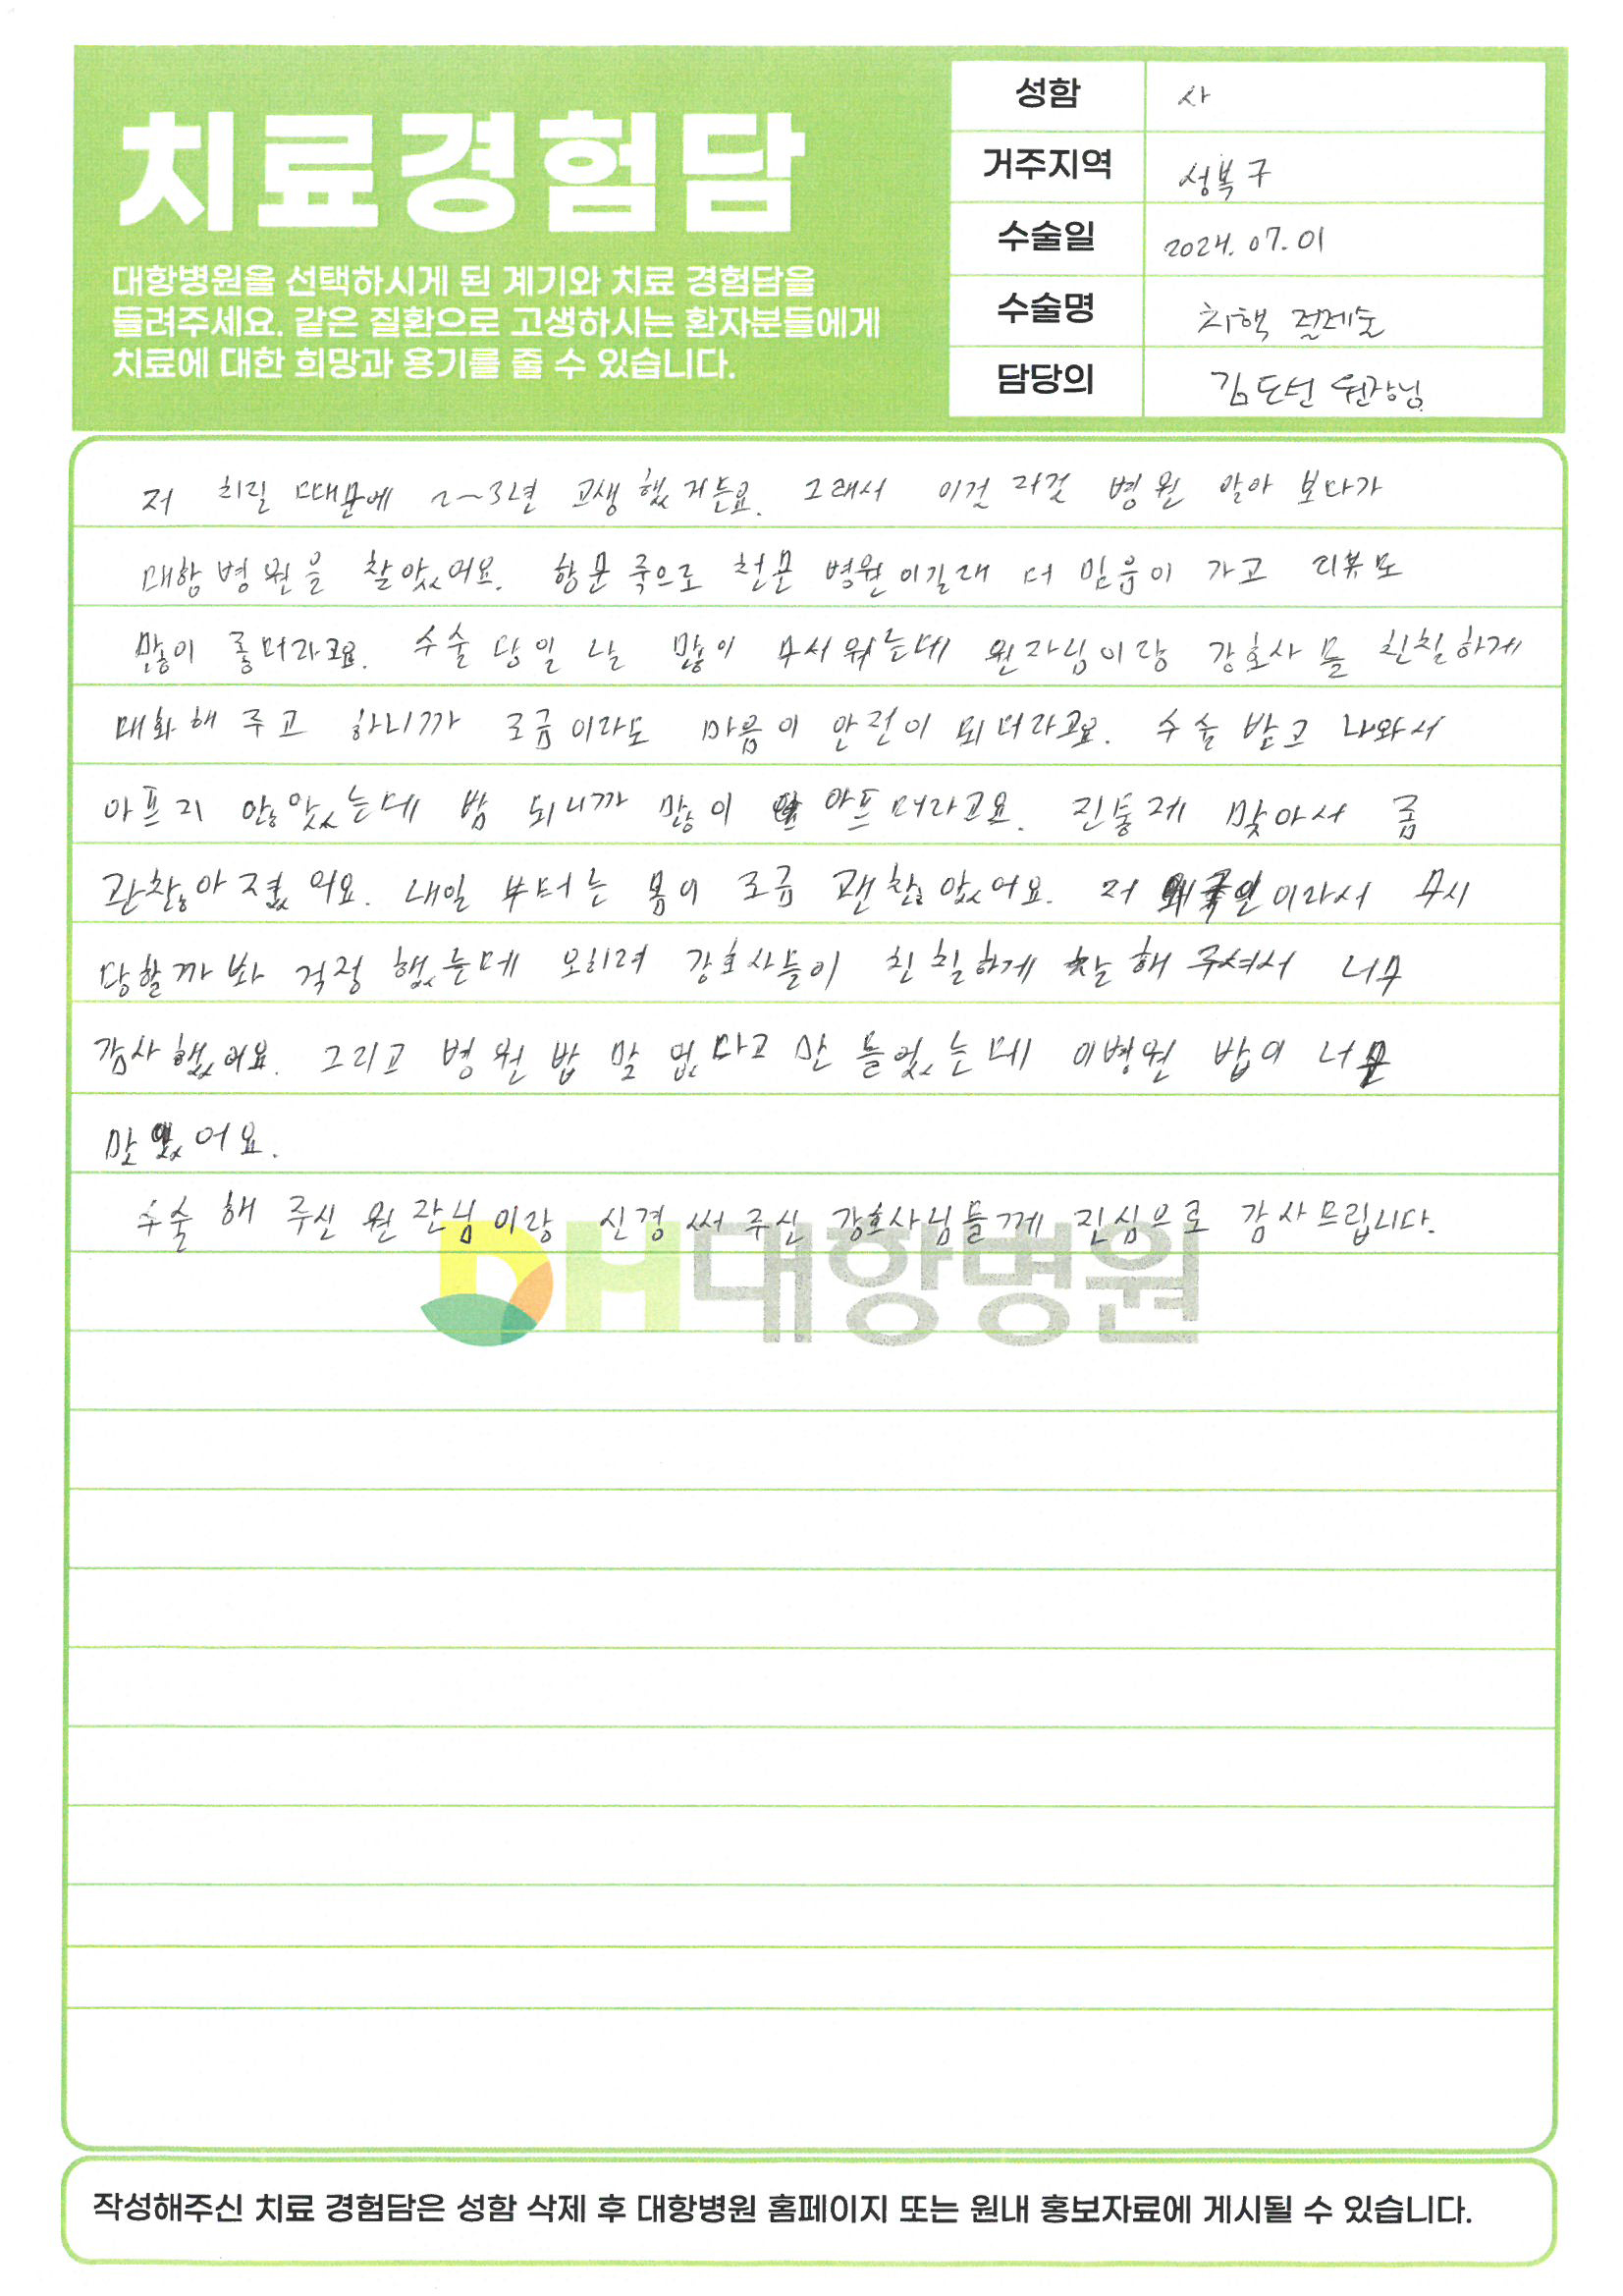 치료경험담
대항병원을 선택하시게 된 계기와 치료 경험담을
들려주세요. 같은 질환으로 고생하시는 환자분들에게
치료에 대한 희망과 용기를 줄 수 있습니다.
성함 사
거주지역 성북구
수술일 2024. 07. 01
수술명 치핵 절제술
담당의 김도선 원장님
저 치질 때문에 2~3년 고생했거든요. 그래서 이것 저것 병원 알아 보다가
대항병원을 찾았어요. 항문 쪽으로 전문 병원이길래 더 믿음이 가고 리뷰도
많이 좋더라고요. 수술 당일 날 많이 무서워는데 원자님이랑 강호사 들 친칠하게
대화해 주고 하니까 조금이라도 마음이 안전이 되더라고요. 수술 받고 나와서
아프지 않았는데 밤 되니까 많이 아프더라고요. 진통제 맞아서 좀
괜찮아졌어요. 내일 부터는 몸이 조금 괜찮았어요. 저 외국인이라서 무시
당할까 봐 걱정 했는데 오히려 강호사들이 친칠하게 잘 해 주셔서 너무
감사했어요. 그리고 병원 밥 맛 없다고 만 들었는데 이병원 밥이 너무
맛있어요.
수술 해 주신 원잔님이랑 신경 써 주신 강호사님들께 진심으로 감사드립니다.
DH대항병원
작성해주신 치료 경험담은 성함 삭제 후 대항병원 홈페이지 또는 원내 홍보자료에 게시될 수 있습니다.